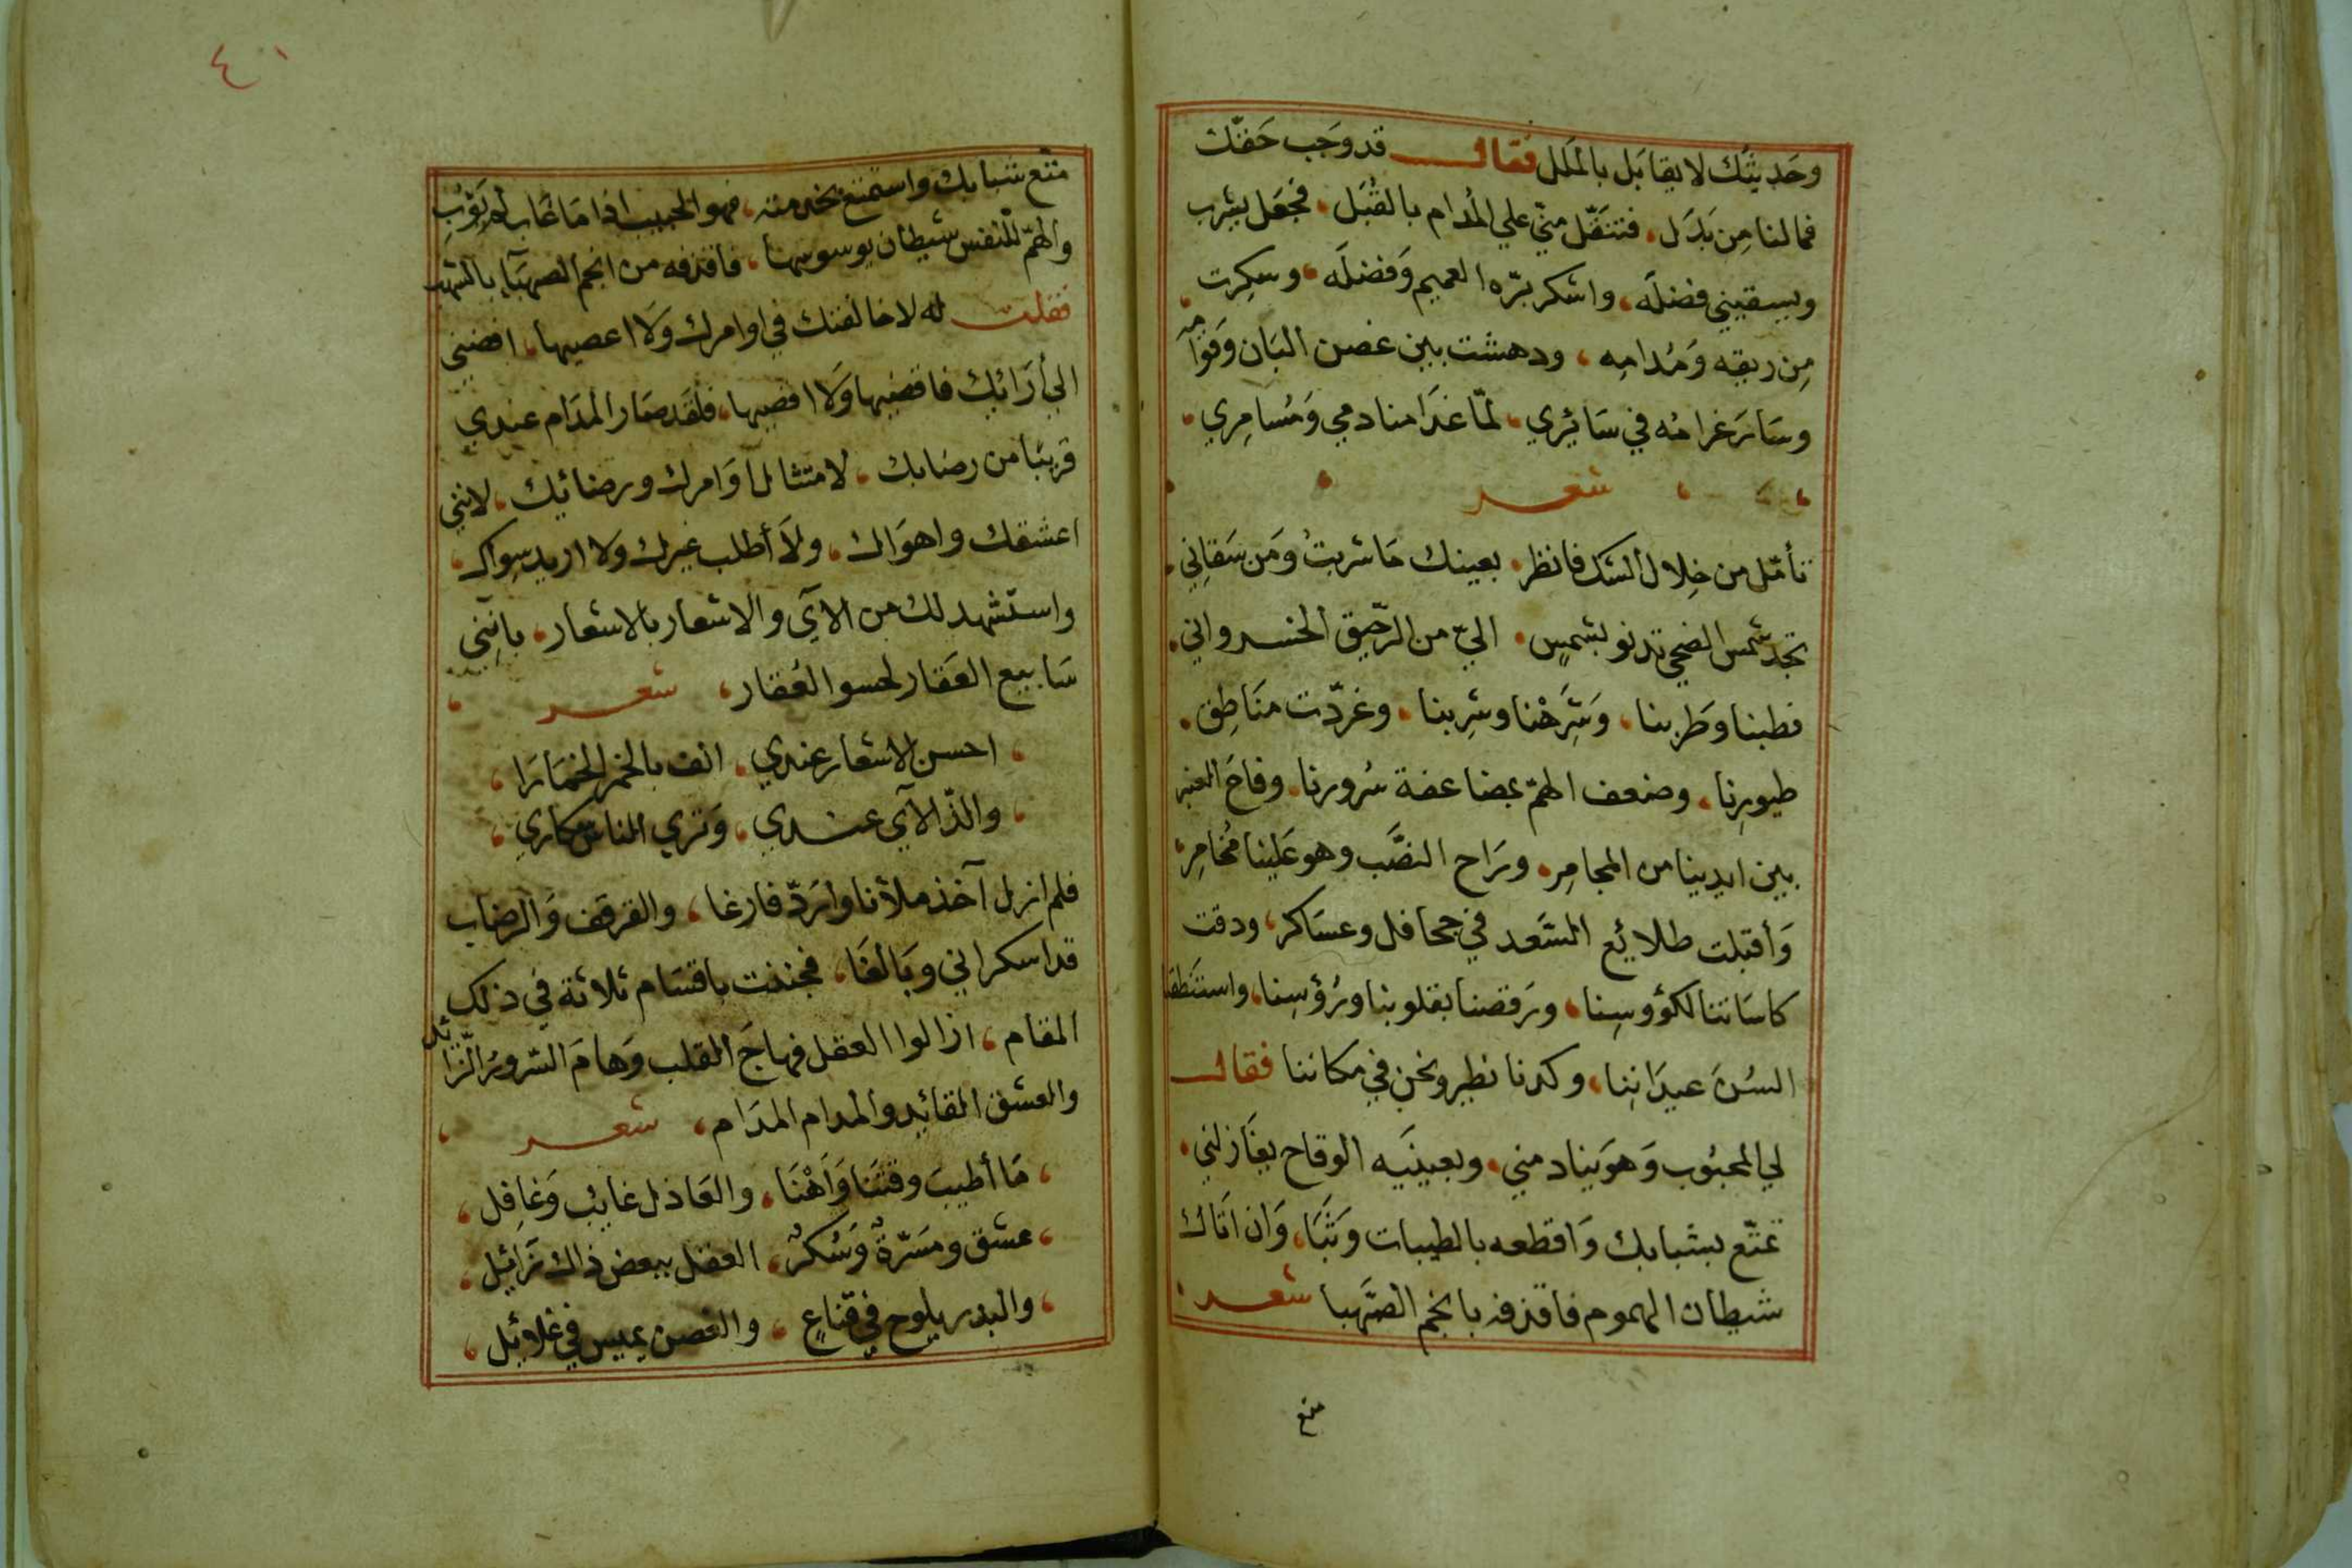 وحَديثك لا يقابَل بالمَلل فقال قد وجَب حَقّك
فما لنا مِن بَدَل، فتنَقّل منيّ علي المُدام بالقُبَل، فجَعَل يشرب
ويسقيني فضلَه، واشكر برّه العميم وَفضلَه، وسكِرت
مِن ريقه وَمُدامِه، ودهشت بين غصن البَان وَقوَامه
وسَارَ غرامُه في سَائِري، لمّا غدَا منادمي وَمُسامِري
شعر
تأمّل من خِلال الشك فانظر، بعينك مَا شربتُ ومَن سَقاِني
تجد شمس الضحي تدنو بشمسٍ، اليّ من الرّحيق الخسرواني
فطبنا وَطَربنا، وَشَرَحْنا وشِربنا، وغرّدت منَاطِق
طيورِنا، وضعف الهمّ بمضاعفة سُرورنا، وفاحَ العنبر
بين ايدينا من المجامِر، ورَاح النصَّب وهو عَلينا مُخامِر
وَأقبلت طلائِع السَّعد في جحافل وعسَاكر، ودقت
كاسَاتنا لكؤوسِنا، ورَقصنا بقلوبنا ورُؤسِنا، واستنَطقنا
السُنَ عيدَانِنا، وكدنا نطير ونحن في مكاننا فقال
لي المحبُوب وَهوَ ينادمني، وبعينَيه الوقاح يغَازلني
تمتّع بشبابك وَاقطعه بالطيبات وَثبَا، وَان اتَاك
شيطان الهموم فاقذفه بانجم الصَّهبا شعر
متع
٤١
متّع شبابك واستمتع بخدمته، فهو الحبيب اذا مَا غَاب لم يَؤبِ
والهمّ للنفس شيطان يوسوسها، فاقذفه من انجم الصهبَآءِ بالشهب
فقلت له لا خالفتك في اوامرك وَلا اعصيها، افضيني
الي أرَائِك فاقضيها وَلا اقصيها، فلقَد صَار المدَام عندي
قريبًا من رضابك، لامتثال اوَامرك ورضائِك، لانني
اعشقك واهوَاك، ولاَ أطلب غيرك ولا اريد سِواك
واستشهد لك من الآي والاشعار بالاشعار، بانَّني
سَابيع العَقار لحسو العُقار، شعر
احسن الاشعار عندي، انف بالخمر الخمَارَا
والذّ الآي عندي، وَتري الناس سكاري
فلم ازل آخذ ملأنا وارَدّ فارغا، والقرقف وَالرضاب
قد اسكراني وبَالغَا، فجننت باقسَام ثلاثة في ذلك
المقام، ازالوا العقل فهاجَ القلب وَهامَ السّرورُ الزّائل
والعشق القائد والمدام المدَام، شعر
مَا أطيبَ وقتَنَا وَأَهْنَا، والعَاذل غايب وَغافِل
عشق ومسَرّة وَسُكرٌ، العقل ببعض ذاك زَائِل
والبدر يلوح في قناعٍ، والغصن يميس في غلائِل